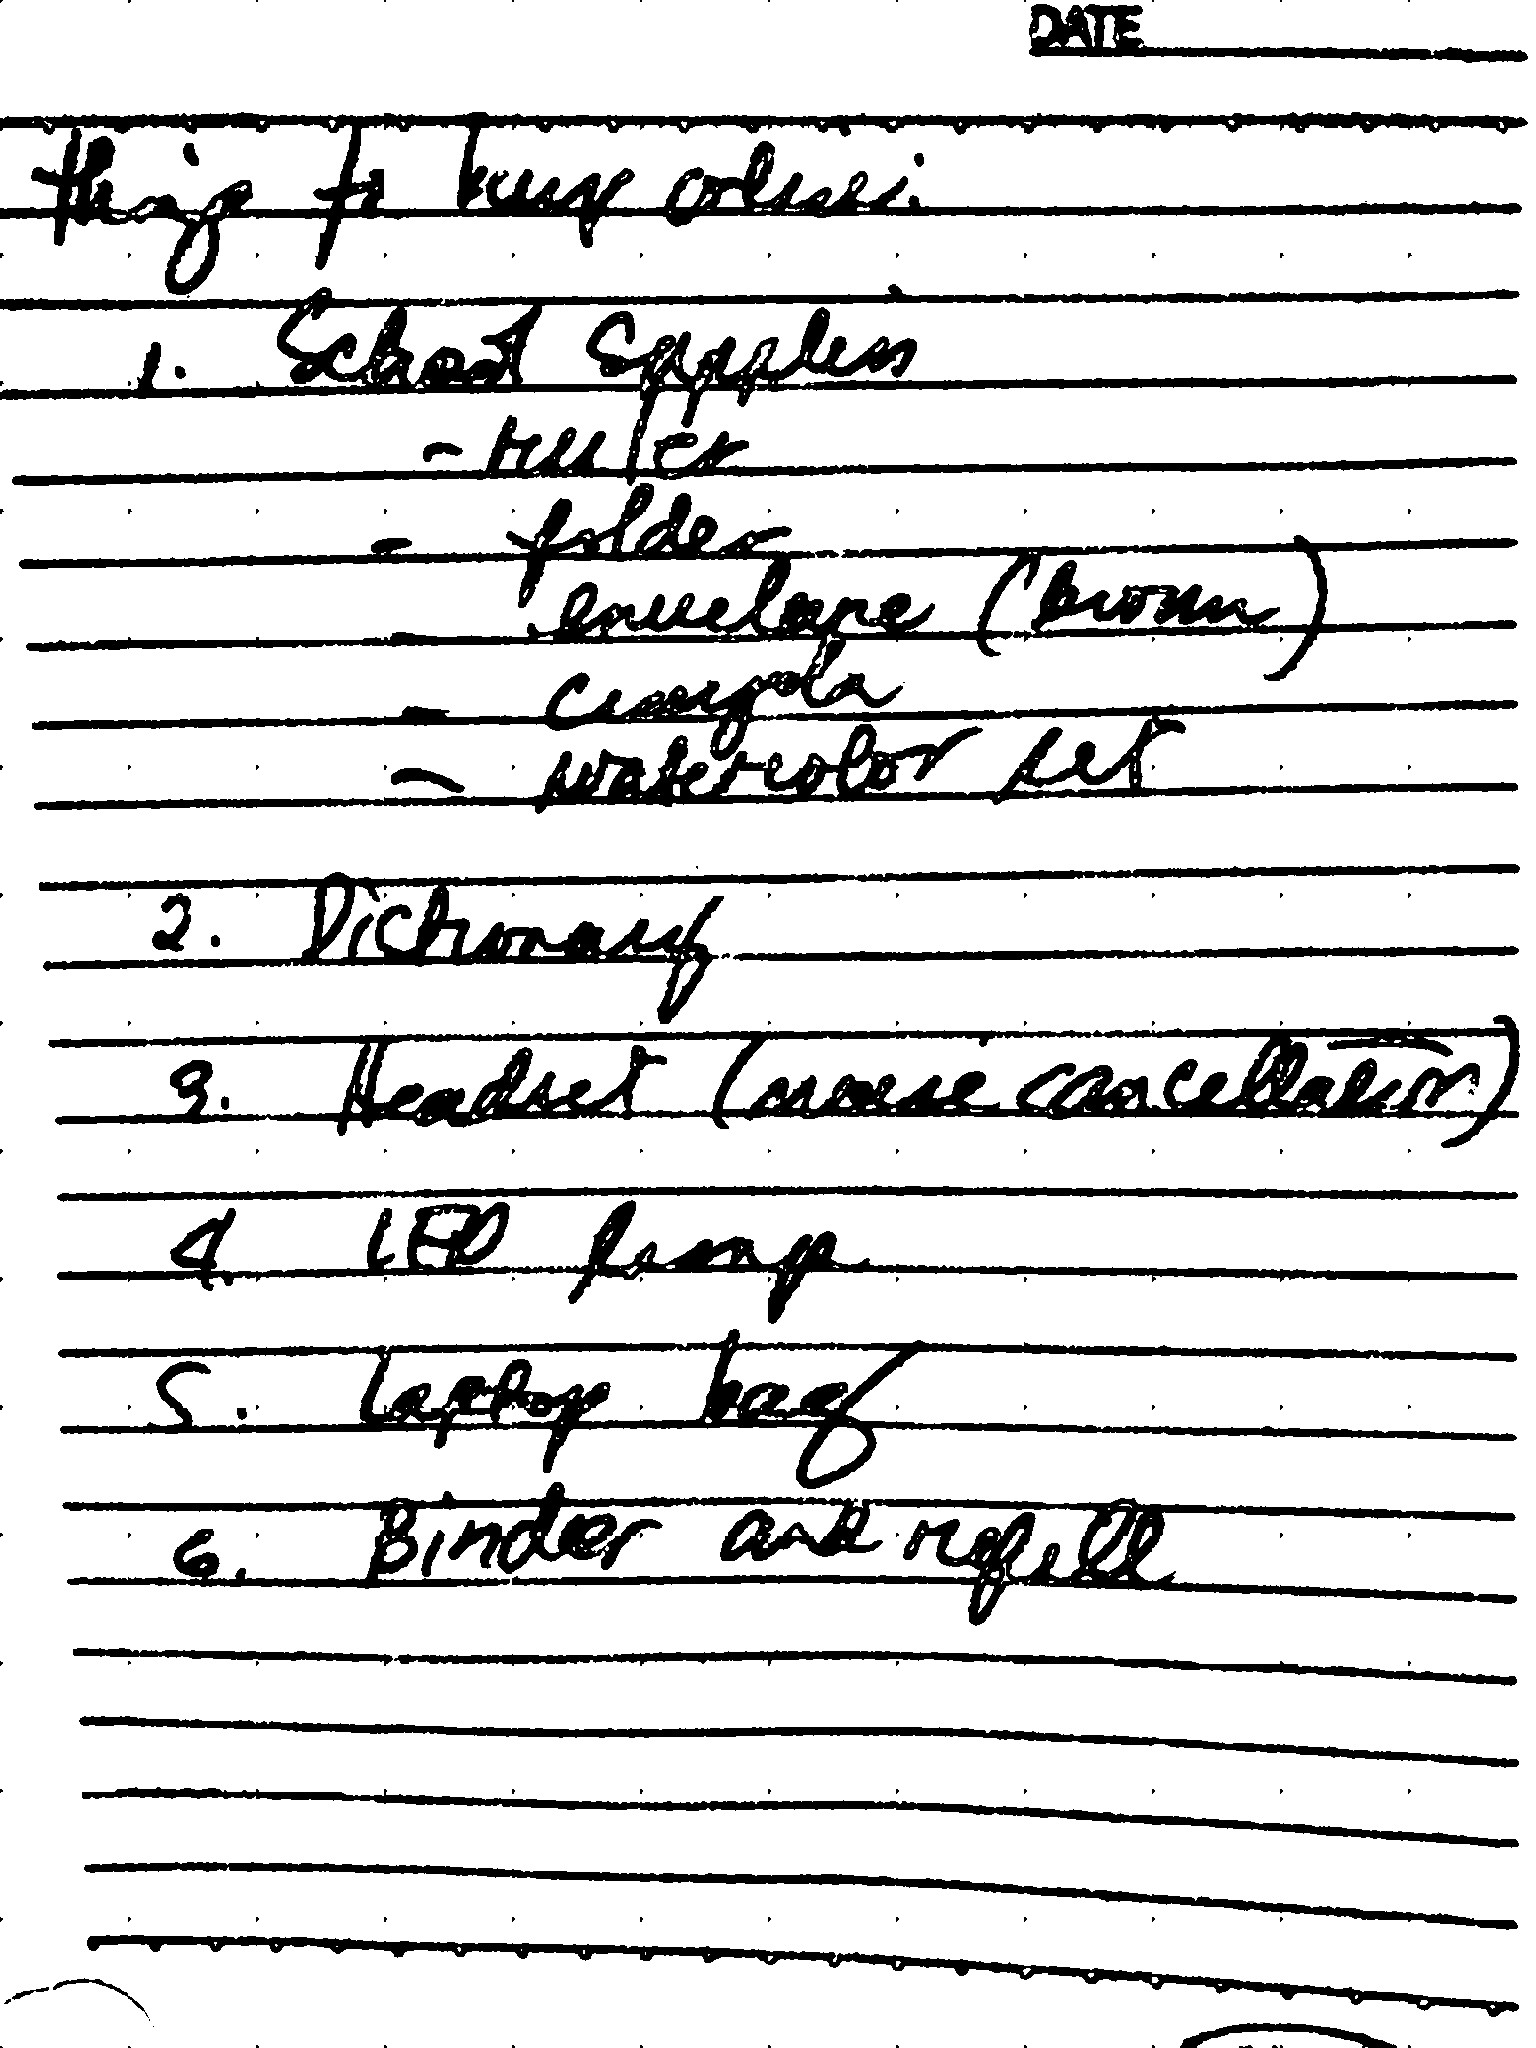 DATE
things to buy online:
1. School Supplies
- ruler
- folder
- envelope (brown)
- watercolor set
2. Dictionary
3. Headset (noise cancellation)
4. LED lamp
5. Laptop bag
6. Binder and refill